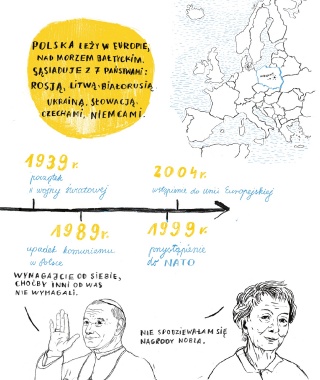 POLSKA LEŻY W EUROPIE,
NAD MORZEM BAŁTYCKIM.
SĄSIADUJE Z 7 PAŃSTWAMI:
ROSJĄ, LITWĄ, BIAŁORUSIĄ
UKRAINĄ, SŁOWACJĄ,
CZECHAMI, NIEMCAMI.
1939r.
początek
II wojny światowej
2004r.
wstąpienie do Unii Europejskiej
1989r.
upadek komunizmu
w Polsce
1999r.
przystąpienie
do NATO
WYMAGAJCIE OD SIEBIE,
CHOĆBY INNI OD WAS
NIE WYMAGALI.
NIE SPODZIEWAŁAM SIĘ
NAGRODY NOBLA.